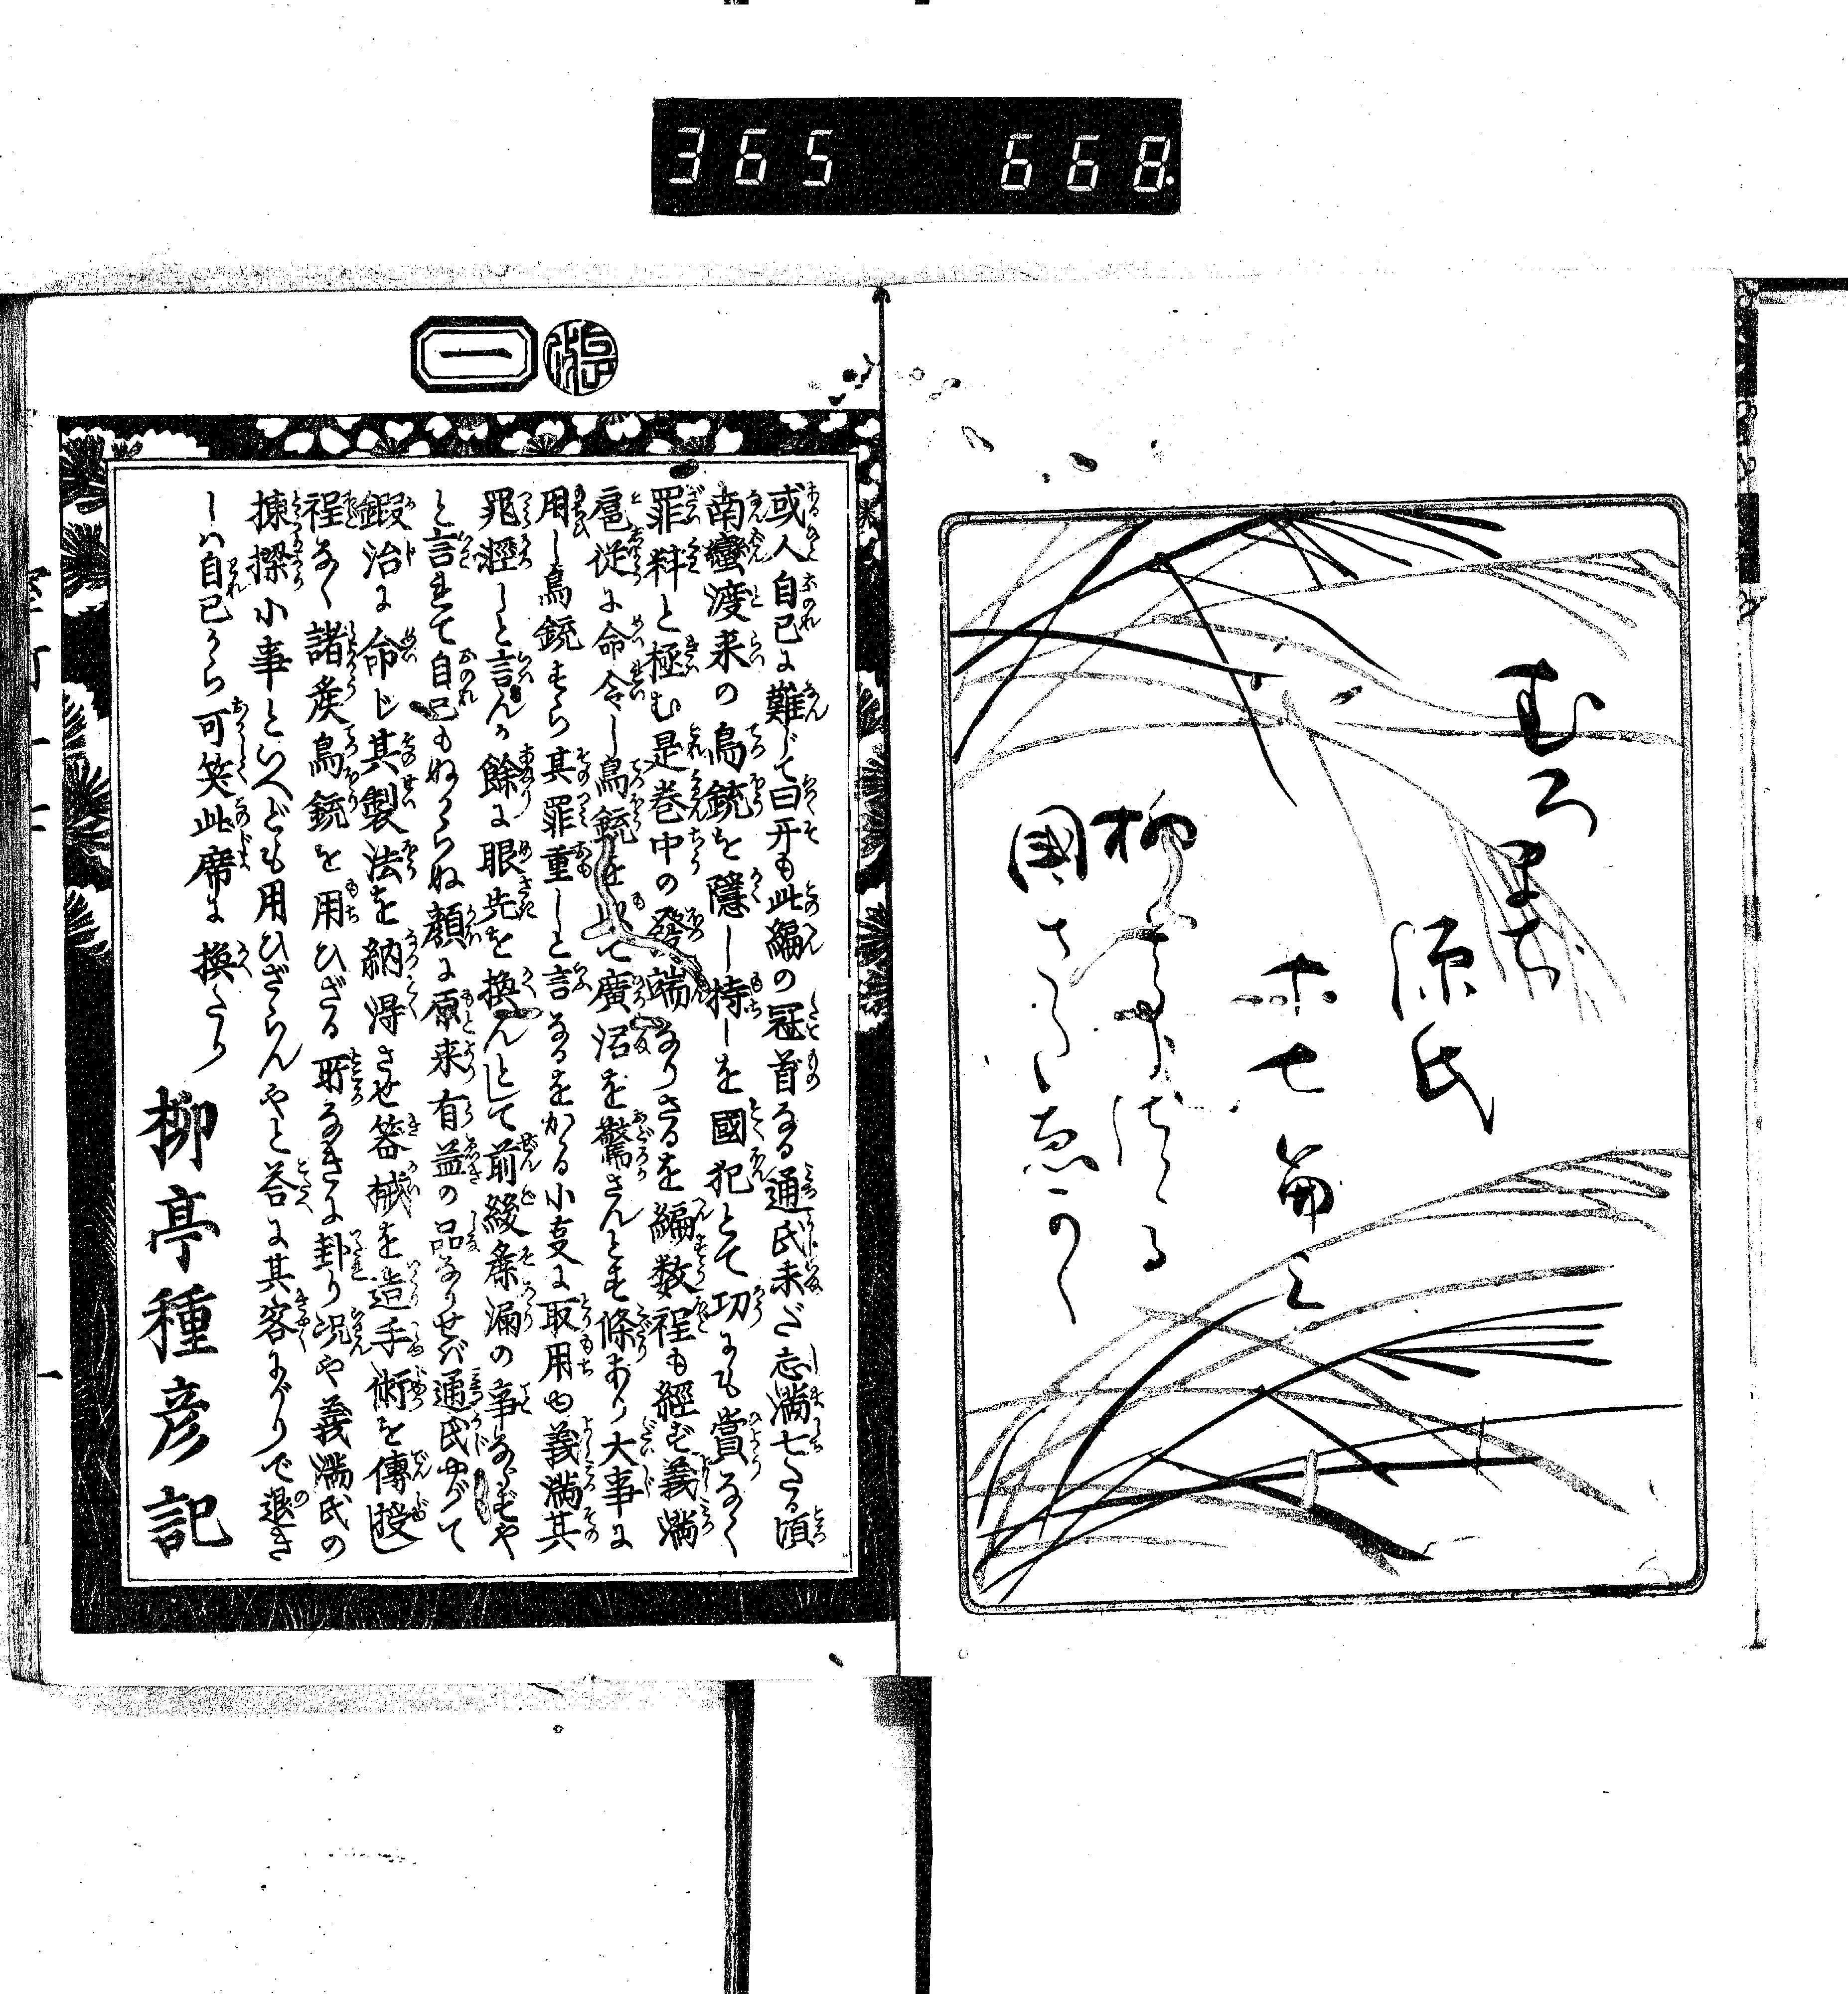 365 668.
むろまち
源氏
廿七篇之
柳亭
國さだゑがく
一
或人自己に難じて曰开も此編の冠首なる通氏未だ志満七たる頃
南蠻渡来の鳥銃を隱し持しを國犯とて功にも賞なく
罪科と極む是巻中の發端なりさるを編数程も經ず義満
扈従に命令し鳥銃を以て廣沼を驚さんとせ條あり大事に
用し鳥銃すら其罪重しと言なるをかゝる小事に取用ゐ義満其
罪輕しと言んか餘に眼先を換んとして前後麁漏の事ならずや
と言れて自己もぬからぬ顔に原来有益の品なりせば通氏やがて
鍜冶に命じ其製法を納得させ器械を造手術を傳授し
程なく諸矦鳥銃を用ひざる所なきに到り况や義満氏の
揀擇小事といへども用ひざらんやと答に其客にがりで退き
しハ自己から可笑此席に換たり
柳亭種彦記